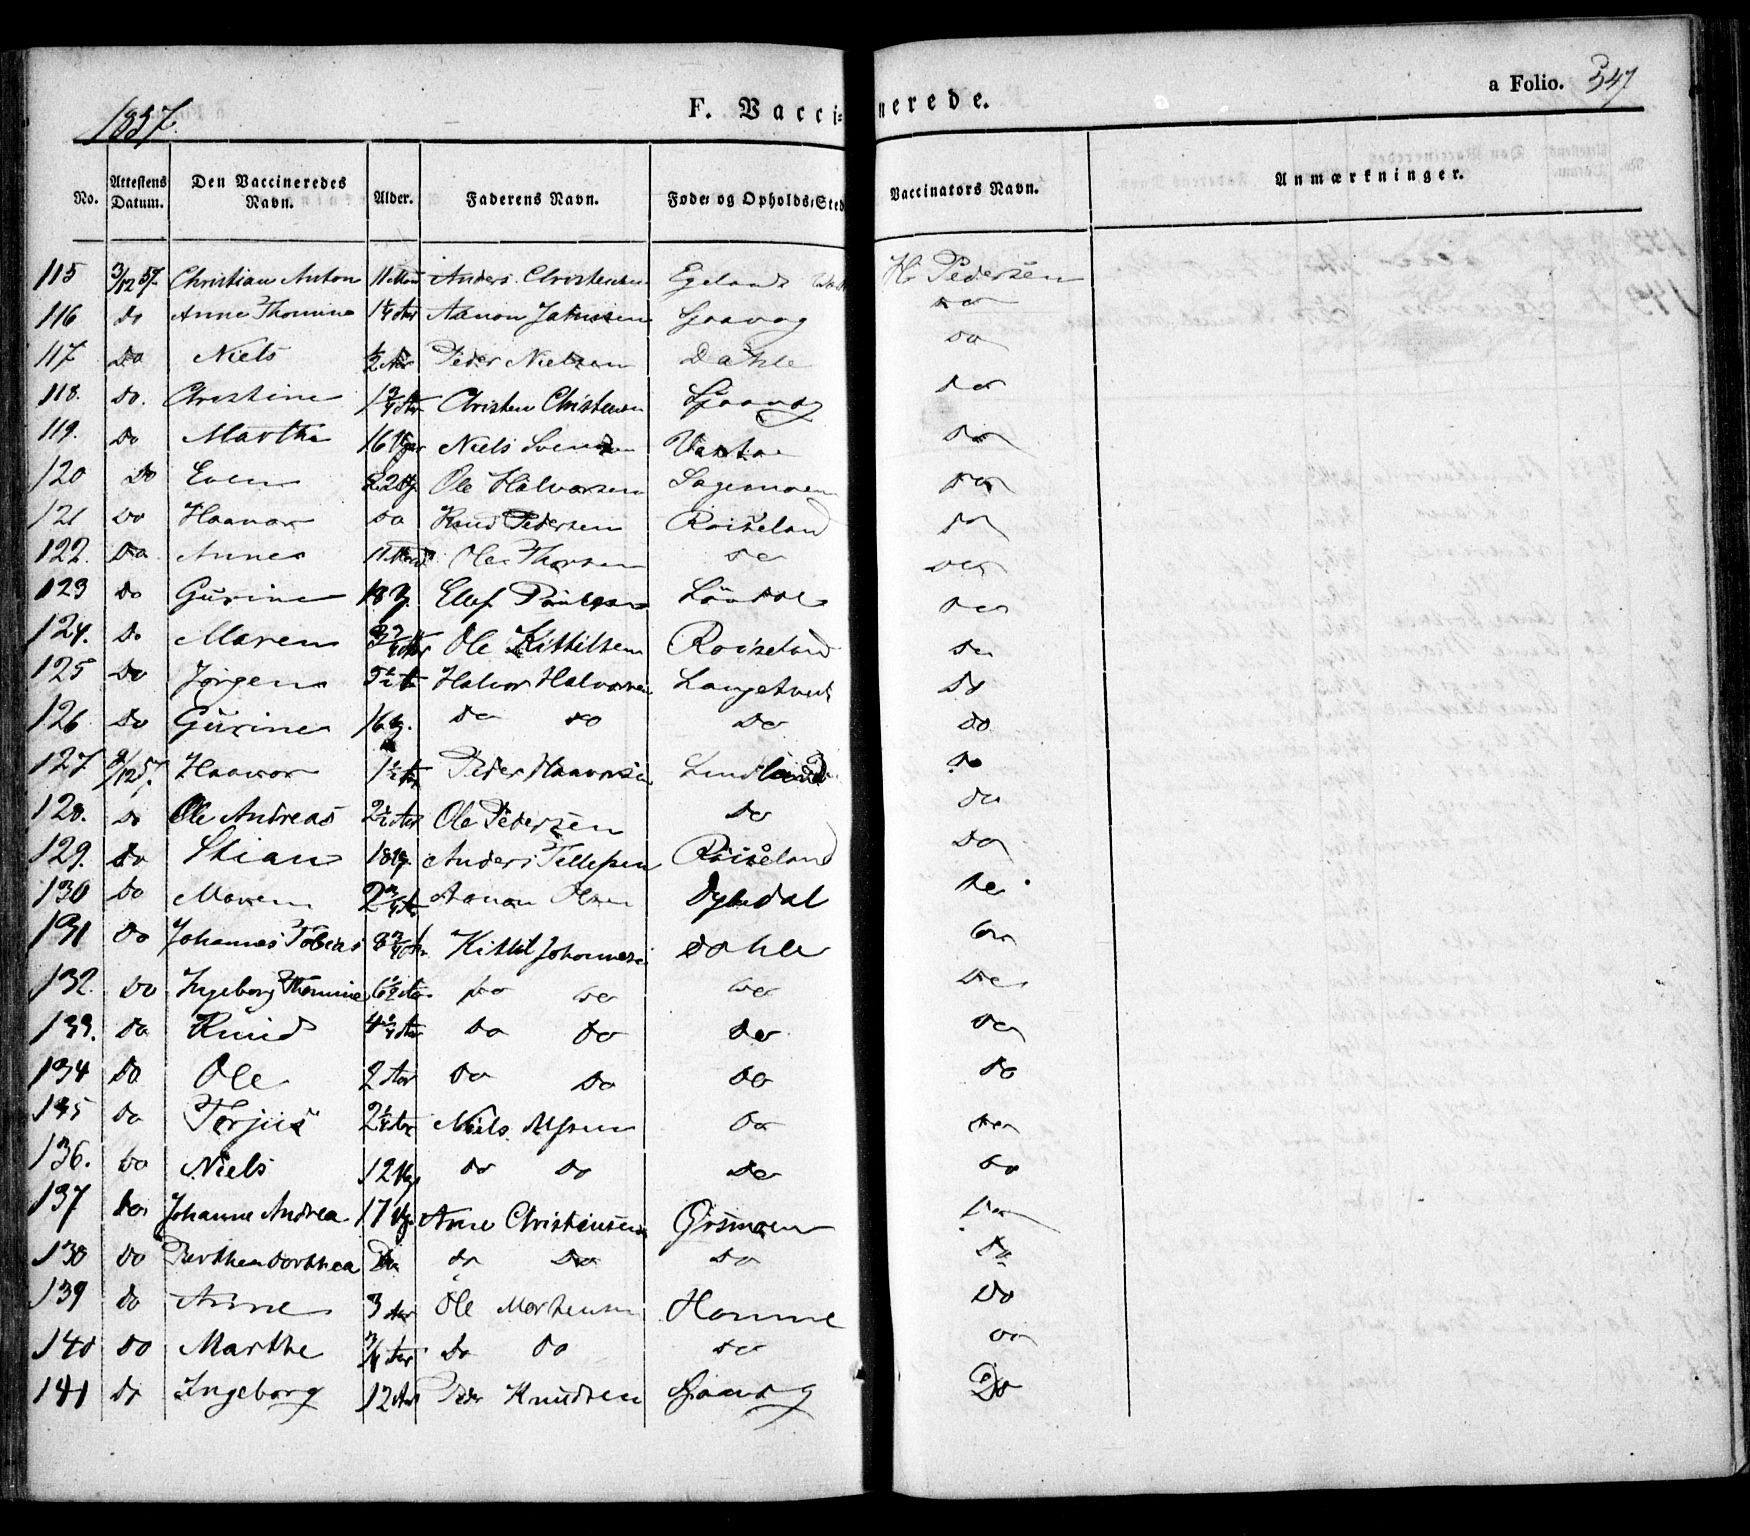 1857.
F. Vaccinerede.
a Folio. 347
No. Attestens Datum. Den Vaccineredes Navn. Alder. Faderens Navn. Føde- og Opholds-Sted Vaccinators Navn. Anmærkninger.
115 3/12 57. Christian Anton 11 Anders Christensen Egeland H. Pedersen
116 do Anne Thomine Aanon do
117 Do Niels 1/2 Aar Peder Nielsen Dahle Do
118. Do. Christine 1 3/4 Aar Christen Christensen do
119. Do Marthe 16 Uger Niels Do
120 Do Even Ole Halvorsen Sagemoen Do
121 Do Haavor Do Knud Pedersen Roiseland Do
122. Do. Annes Ole Thorsen Do Do
123 Do Gurine 18 U. Ellef Do
124. Do Maren Ole Kittilsen Roiseland Do
125 Do Jørgen Halvor Halvorsen Langetvedt Do
126 Do Gurine 16 U. Do do Do do
127 9/12 57. Haavor 1 1/2 Aar Peder Haavorsen Lindland Do
128. Do Ole Andreas 2 1/2 Aar Ole Pedersen Do Do
129. Do Stian 18 Ug. Anders Tellefsen Roiseland Do
130 Do Maren 2 3/4 Aar Aanon Olsen Dybdal Do
131 Do Johannes Tobias 8 3/4 Aar Kittil Johannesen Dahle Do
132. Do Ingeborg Thomine 6 1/2 Aar Do Do Do Do
133. Do Knud Do Do Do Do
134 Do Ole 2 Aar Do Do Do Do
135 Do Terjus 2 1/4 Aar Niels Do Do
136. Do Niels 12 Ug. Do Do Do Do
137 Do Johanne Andrea 17 Ug. Arne Christensen Ørsmoen Do
138 Do Berthe Dorthea Do do Do Do Do
139 do Anne 3 Aar Ole Mortensen Homme Do
140 Do Marthe 3/4 Aar Do Do Do Do
141 Do Ingeborg 12 Aar Peder Knudsen Do